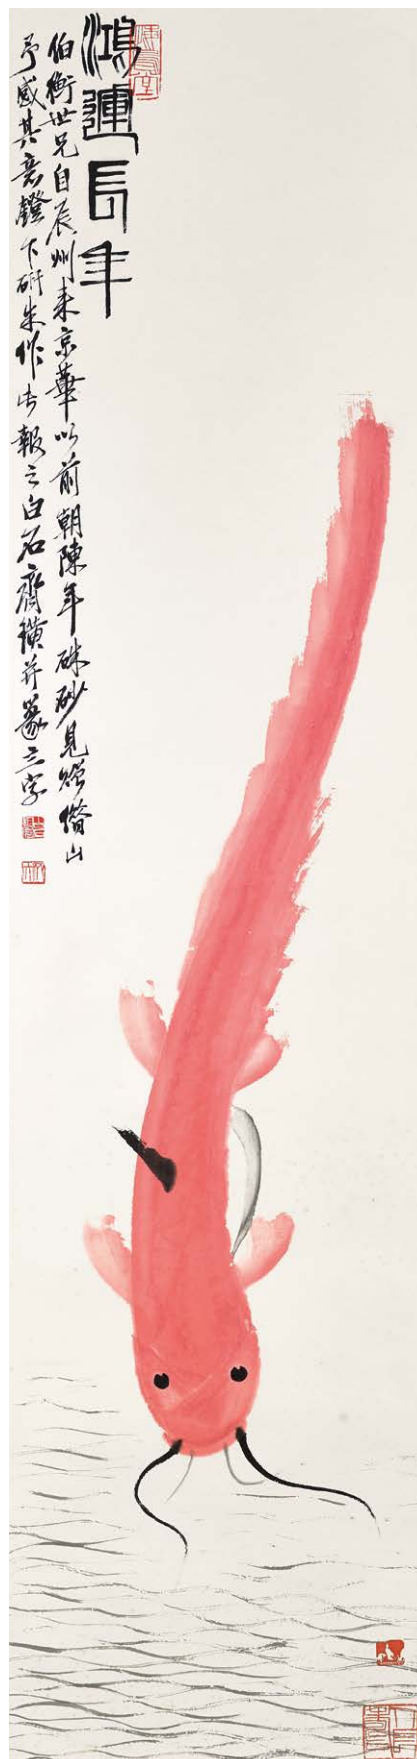 鴻運長年
伯衡世兄自辰州来京華以前朝陳年硃砂見貽借山
予感其意鐙下研朱作此報之白石齊璜并篆三字